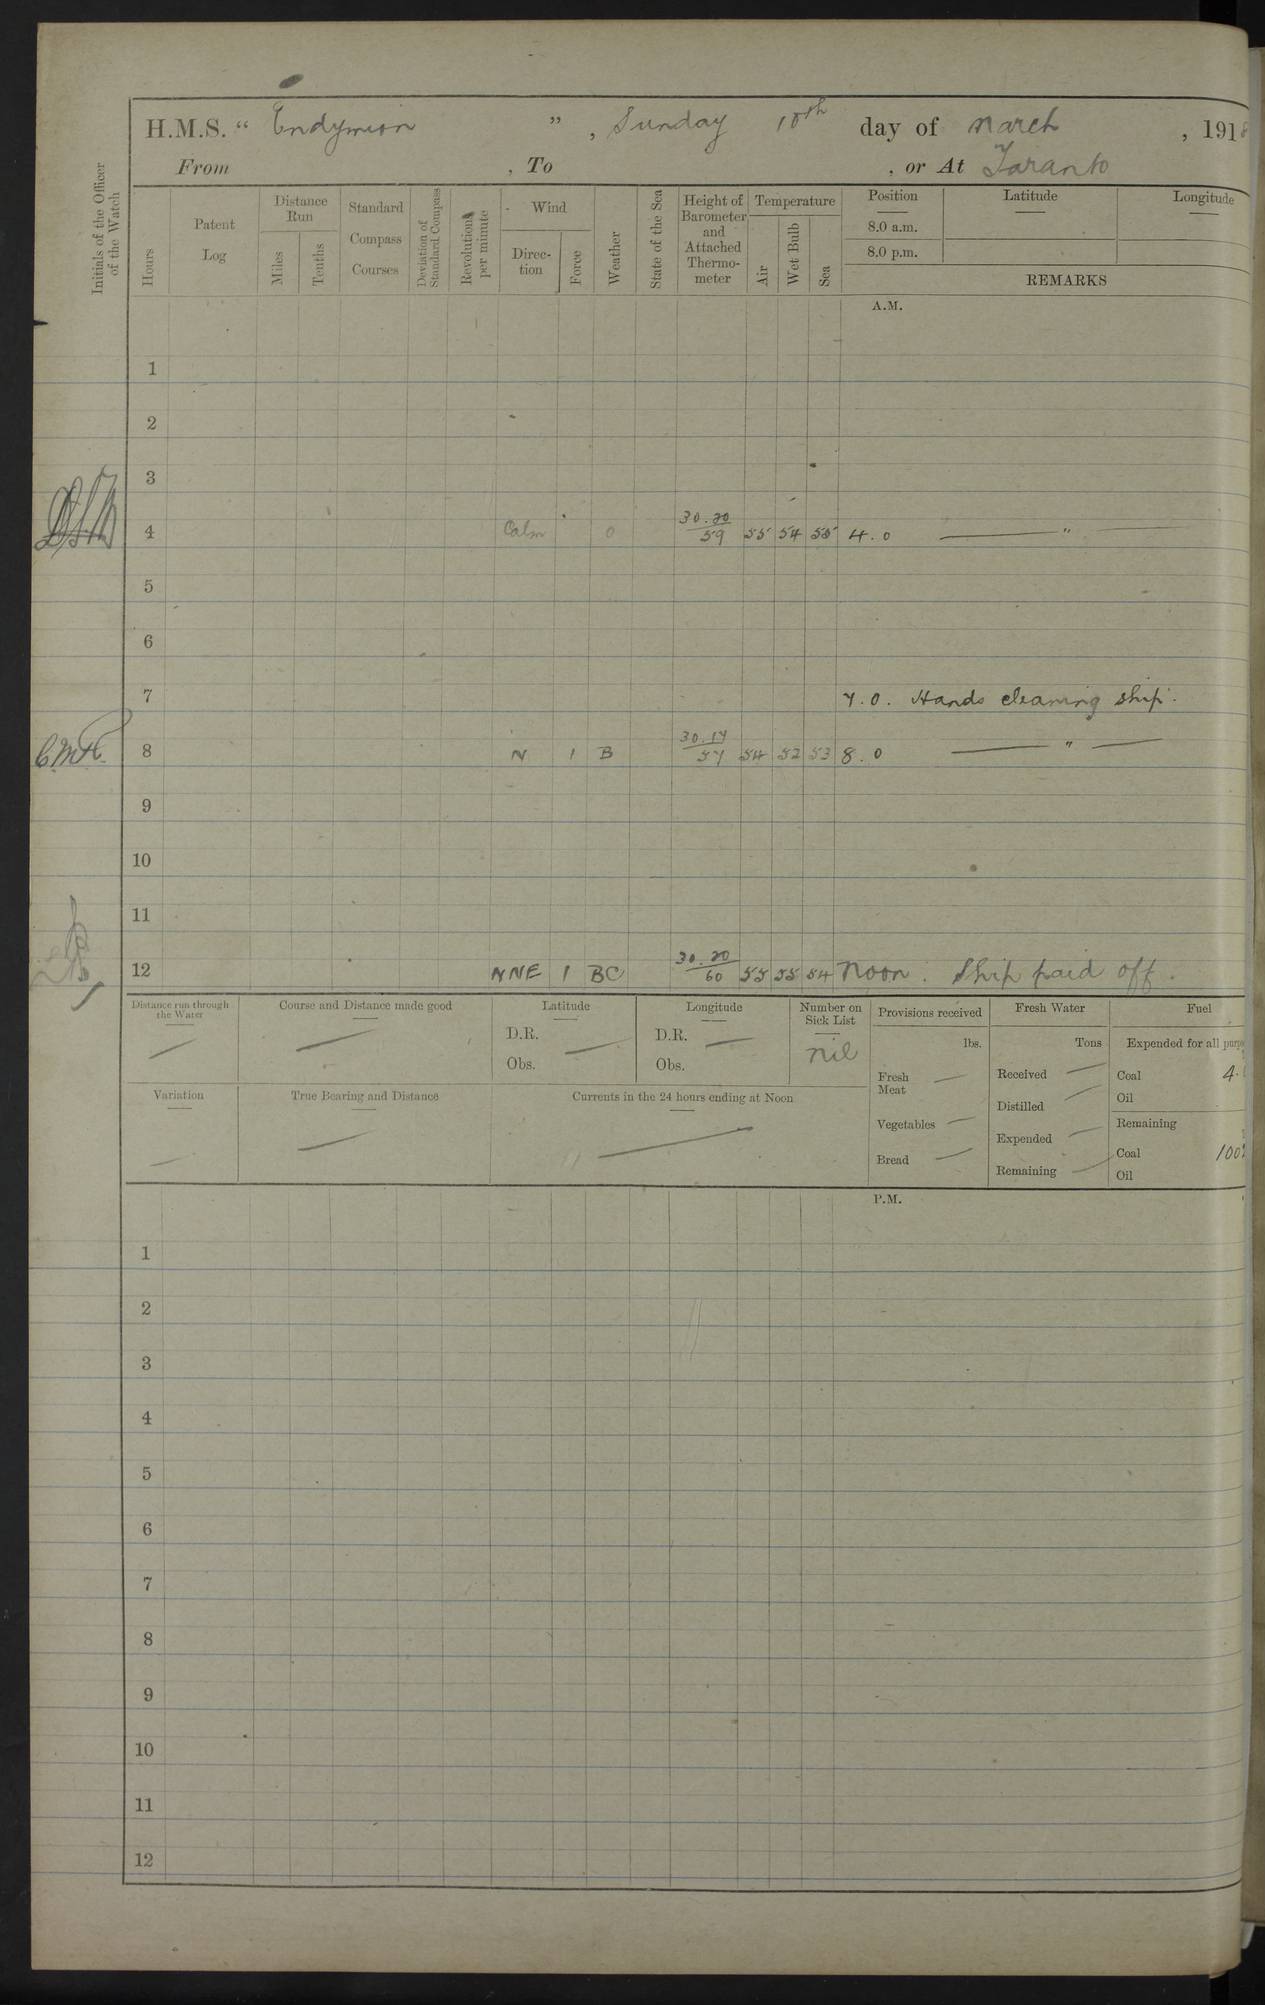 H.M.S. “ Endymion ” , Sunday 10th day of March , 1918
From , To , or At Taranto
Initials of the Officer of the Watch
Hours
Patent Log
Distance Run
Miles
Tenths
Standard Compass Courses
Deviation of Standard Compass
Revolutions per minute
Wind
Direction
Force
Weather
State of the Sea
Height of Barometer and Attached Thermometer
Temperature
Air
Wet Bulb
Sea
Position Latitude Longitude
8.0 a.m.
8.0 p.m.
REMARKS
A.M.
1
2
3
4 Calm 0 30.20 59 55 54 55 4.0 "
5
6
7 7.0. Hands cleaning ship.
C.M.H. 8 N 1 B 30.17 57 54 52 53 8.0 "
9
10
11
12 NNE 1 BC 30.20 60 55 55 54 Noon. Ship paid off.
Distance run through the Water
Course and Distance made good
Latitude
D.R.
Obs.
Longitude
D.R.
Obs.
Number on Sick List
nil
Provisions received
lbs.
Fresh Meat
Vegetables
Bread
Fresh Water
Tons
Received
Distilled
Expended
Remaining
Fuel
Expended for all
Coal 4.
Oil
Remaining
Coal 100
Oil
Variation
True Bearing and Distance
Currents in the 24 hours ending at Noon
P.M.
1
2
3
4
5
6
7
8
9
10
11
12